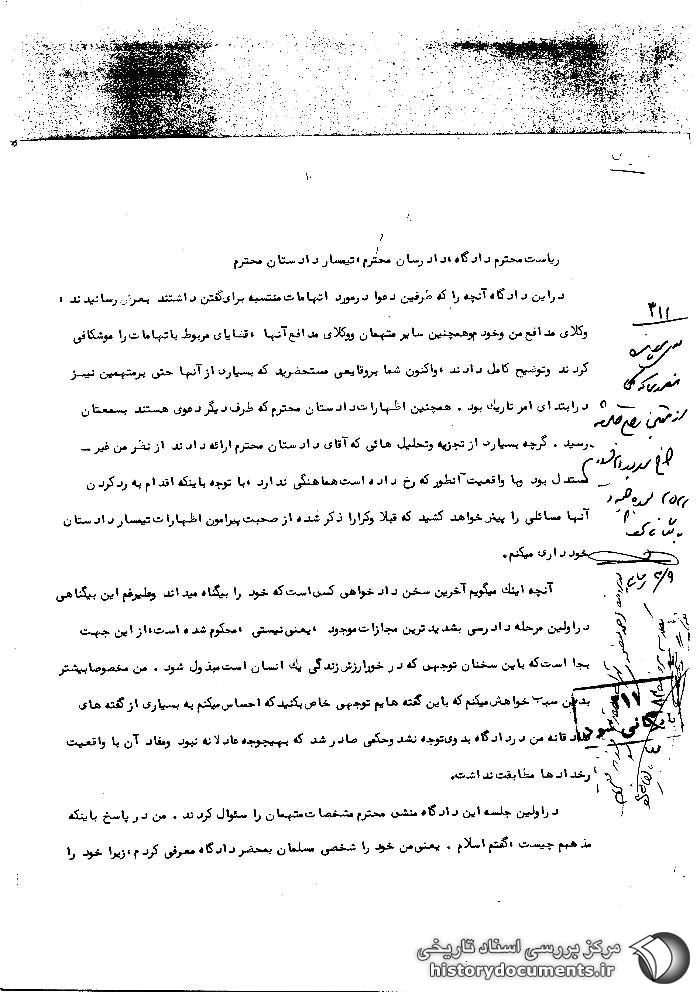 ریاست محترم دادگاه، دادرسان محترم، تیمسار دادستان محترم
دراین دادگاه آنچه را که طرفین دعوا درمورد اتهامات منتسبه برای گفتن داشتند بعرض رسانیدند،
وکلای مدافع من وخودم وهمچنین سایر متهمان ووکلای مدافع آنها ، قضایای مربوط باتهامات را موشکافی
کردند وتوضیح کامل دادند ، واکنون شما بروقایعی مستحضرید که بسیاری از آنها حتی برمتهمین نیز
درابتدای امر تاریک بود . همچنین اظهارات دادستان محترم که طرف دیگر دعوی هستند بسمعتان
رسید . گرچه بسیاری از تجزیه وتحلیل هائی که آقای دادستان محترم ارائه دادند از نظر من غیر ـ
مستدل بود وبا واقعیت آنطور که رخ داده است هماهنگی ندارد ، با توجه باینکه اقدام به رد کردن
آنها مسائلی را پیش خواهد کشید که قبلا وکرارا ذکر شده از صحبت پیرامون اظهارات تیمسار دادستان
خودداری میکنم .
آنچه اینک میگویم آخرین سخن دادخواهی کسی است که خود را بیگناه میداند وعلیرغم این بیگناهی
دراولین مرحله دادرسی بشدیدترین مجازات موجود ، یعنی نیستی ، محکوم شده است، از این جهت
بجا است که باین سخنان توجهی که در خورارزش زندگی یک انسان است مبذول شود . من مخصوصا بیشتر
بدین سبب خواهش میکنم که باین گفته هایم توجهی خاص بکنید که احساس میکنم به بسیاری از گفته های
صادقانه من در دادگاه بدوی توجه نشد وحکمی صادر شد که بهیچوجه عادلانه نبود ومفاد آن با واقعیت
رخدادها مطابقت نداشت.
دراولین جلسه این دادگاه منشی محترم مشخصات متهمان را سئوال کردند . من در پاسخ باینکه
مذهبم چیست ، گفتم اسلام . یعنی من خود را شخصی مسلمان بمحضر دادگاه معرفی کردم ، زیرا خود را
۳۱۱
مرکز بررسی اسناد تاریخی
historydocuments.ir